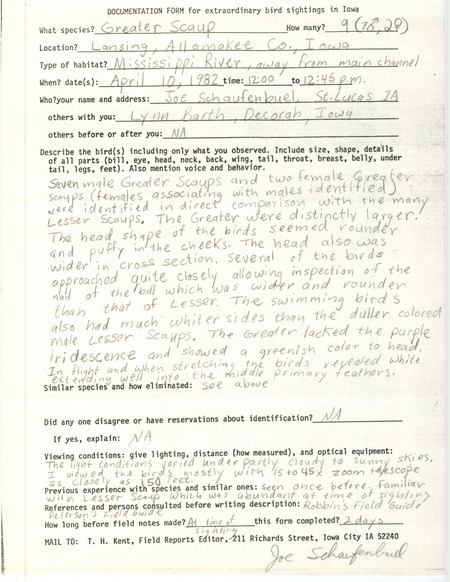 DOCUMENTATION FORM for extraordinary bird sightings in Iowa
What species? Greater Scaup How many? 9 (7♂, 2♀)
Location? Lansing, Allamakee Co., Iowa
Type of habitat? Mississippi River, away from main channel
When? date(s): April 10, 1982 time: 12:00 to 12:45 p.m.
Who? your name and address: Joe Schaufenbuel, St. Lucas IA
others with you: Lynn Barth, Decorah, Iowa
others before or after you: NA
Describe the bird(s) including only what you observed. Include size, shape, details
of all parts (bill, eye, head, neck, back, wing, tail, throat, breast, belly, under
tail, legs, feet). Also mention voice and behavior.
Seven male Greater Scaups and two female Greater
Scaups (females associating with males identified)
were identified in direct comparison with the many
Lesser Scaups. The Greater were distinctly larger.
The head shape of the birds seemed rounder
and puffy in the cheeks. The head also was
wider in cross section. Several of the birds
approached quite closely allowing inspection of the
nail of the bill which was wider and rounder
than that of Lesser. The swimming bird's
also had much whiter sides than the duller colored
male Lesser Scaups. The Greater lacked the purple
iridescence and showed a greenish color to head.
In flight and when stretching the birds revealed white
extending well into the middle primary feathers.
Similar species and how eliminated: see above
Did any one disagree or have reservations about identification? NA
If yes, explain: NA
Viewing conditions: give lighting, distance (how measured), and optical equipment:
The light conditions varied under partly cloudy to sunny skies.
I viewed the birds mostly with 15 to 45x zoom telescope
as closely as 150 feet.
Previous experience with species and similar ones: seen once before, familiar
with Lesser Scaup which was abundant at time of sighting
References and persons consulted before writing description: Robbin's Field Guide
Peterson's Field Guide
How long before field notes made? At time of sighting this form completed? 2 days
MAIL TO: T. H. Kent, Field Reports Editor, 211 Richards Street, Iowa City IA 52240
Joe Schaufenbuel